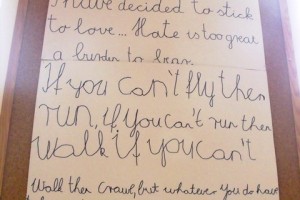 I have decided to stick
to love... Hate is too great
a burden to bear.
If you can't fly then
run, if you can't run then
walk if you can't
Walk then crawl, but whatever you do have